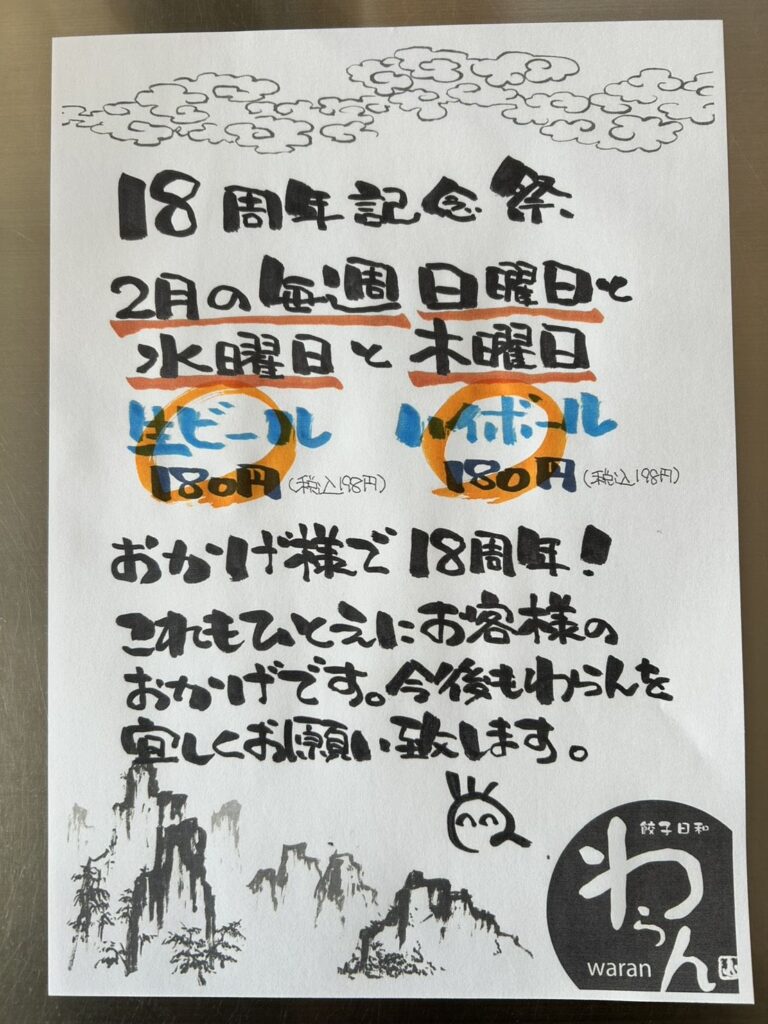 18周年記念祭
2月の毎週 日曜日と
水曜日と木曜日
生ビール ハイボール
180円(税込198円) 180円(税込198円)
おかげ様で18周年!
これもひとえにお客様の
おかげです。今後もわらんを
宜しくお願い致します。
餃子日和
わらん
waran